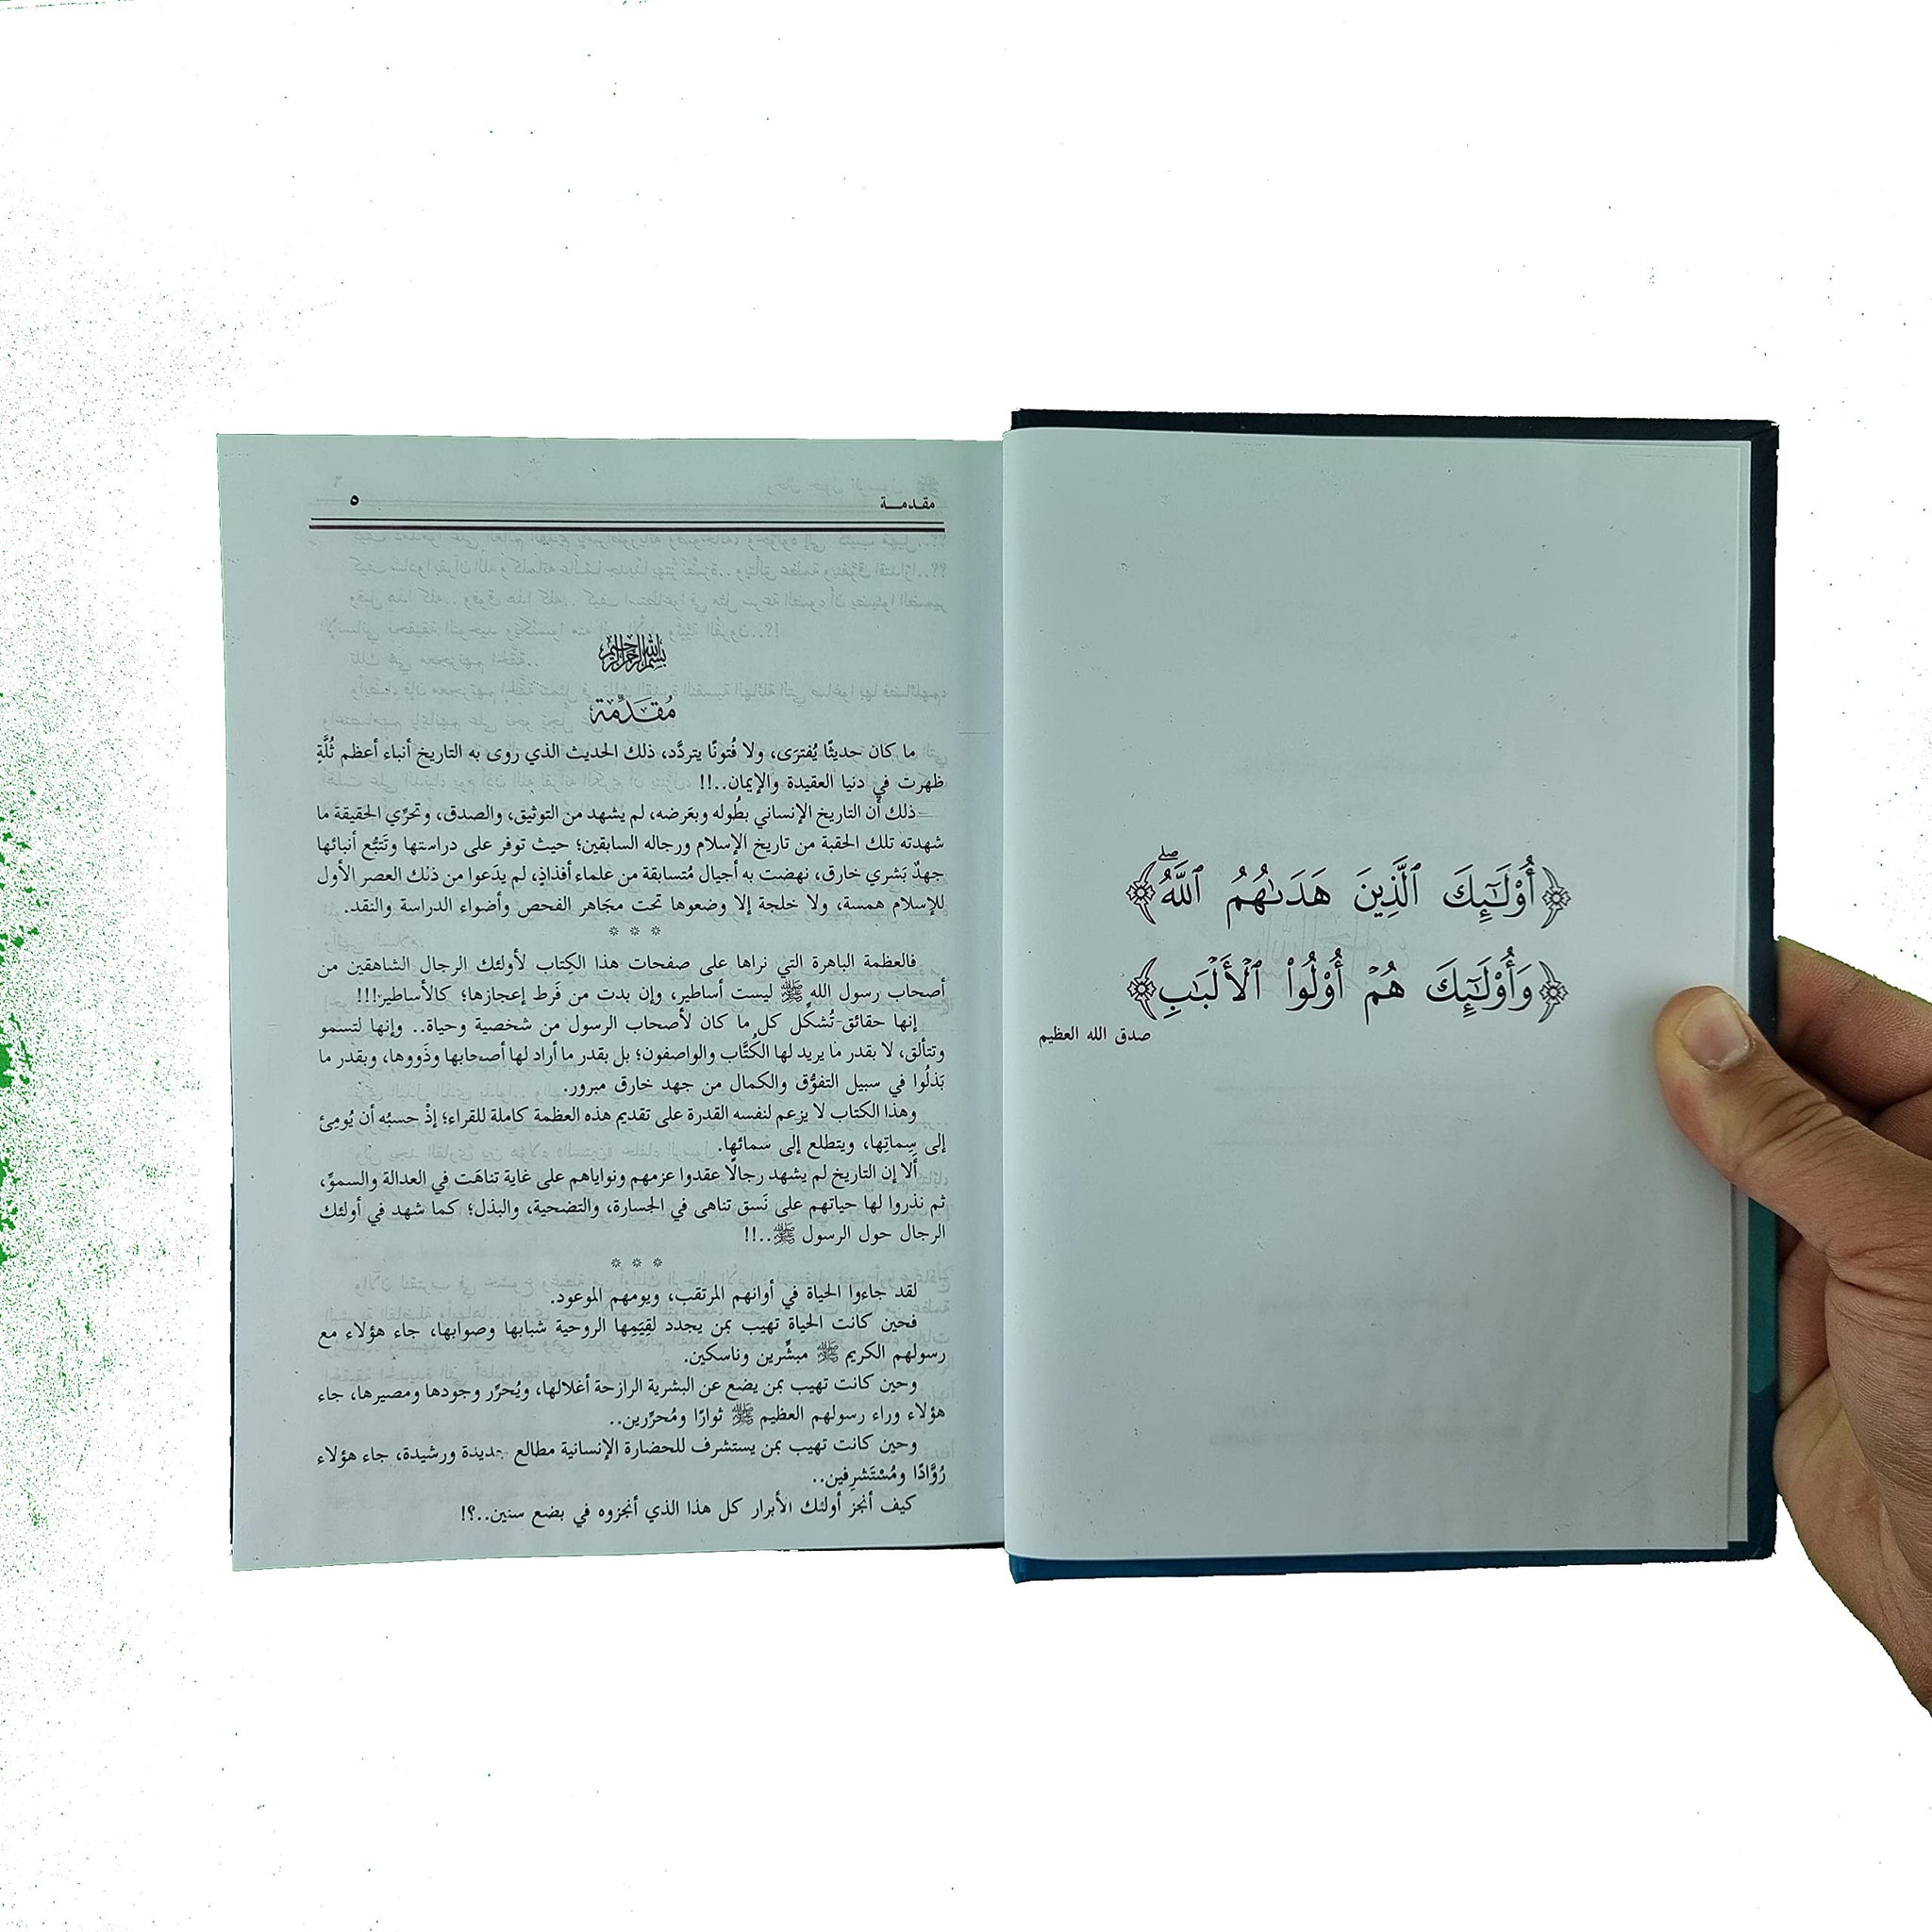 ﴿أُوْلَـٰٓئِكَ ٱلَّذِينَ هَدَىٰهُمُ ٱللَّهُۖ﴾
﴿وَأُوْلَـٰٓئِكَ هُمۡ أُوْلُواْ ٱلۡأَلۡبَـٰبِ﴾
صدق الله العظيم
مقدمة ٥
بسم الله الرحمن الرحيم
مُقَدِّمَة
ما كان حديثًا يُفترَى، ولا فُتونًا يتردَّد، ذلك الحديث الذي روى به التاريخ أنباء أعظم ثُلَّةٍ
ظهرت في دنيا العقيدة والإيمان..!!
ذلك أن التاريخ الإنساني بطُوله وبعَرضه، لم يشهد من التوثيق، والصدق، وتحرِّي الحقيقة ما
شهدته تلك الحقبة من تاريخ الإسلام ورجاله السابقين؛ حيث توفر على دراستها وتَتبُّع أنبائها
جهدٌ بَشري خارق، نهضت به أجيال مُتسابقة من علماء أفذاذٍ، لم يدَعوا من ذلك العصر الأول
للإسلام همسة، ولا خلجة إلا وضعوها تحت مجَاهر الفحص وأضواء الدراسة والنقد.
* * *
فالعظمة الباهرة التي نراها على صفحات هذا الكِتاب لأولئك الرجال الشاهقين من
أصحاب رسول الله ﷺ ليست أساطير، وإن بدت من فَرط إعجازها؛ كالأساطير!!!
إنها حقائق تُشكِّل كل ما كان لأصحاب الرسول من شخصية وحياة.. وإنها لتسمو
وتتألق، لا بقدر ما يريد لها الكُتَّاب والواصفون؛ بل بقدر ما أراد لها أصحابها وذَووها، وبقدر ما
بَذلُوا في سبيل التفوُّق والكمال من جهد خارق مبرور.
وهذا الكتاب لا يزعم لنفسه القدرة على تقديم هذه العظمة كاملة للقراء؛ إذْ حسبُه أن يُومِئ
إلى سِماتِها، ويتطلع إلى سَمائها.
ألا إن التاريخ لم يشهد رجالًا عقدوا عزمهم ونواياهم على غاية تناهَت في العدالة والسموِّ،
ثم نذروا لها حياتهم على نَسق تناهى في الجسارة، والتضحية، والبذل؛ كما شهد في أولئك
الرجال حول الرسول ﷺ..!!
* * *
لقد جاءوا الحياة في أوانهم المرتقب، ويومهم الموعود.
فحين كانت الحياة تهيب بمن يجدد لقِيَمِها الروحية شبابها وصوابها، جاء هؤلاء مع
رسولهم الكريم ﷺ مبشِّرين وناسكين.
وحين كانت تهيب بمن يضع عن البشرية الرازحة أغلالها، ويُحرِّر وجودها ومصيرها، جاء
هؤلاء وراء رسولهم العظيم ﷺ ثوارًا ومُحرِّرين..
وحين كانت تهيب بمن يستشرف للحضارة الإنسانية مطالع جديدة ورشيدة، جاء هؤلاء
رُوَّادًا ومُسْتَشرِفين..
كيف أنجز أولئك الأبرار كل هذا الذي أنجزوه في بضع سنين..؟!